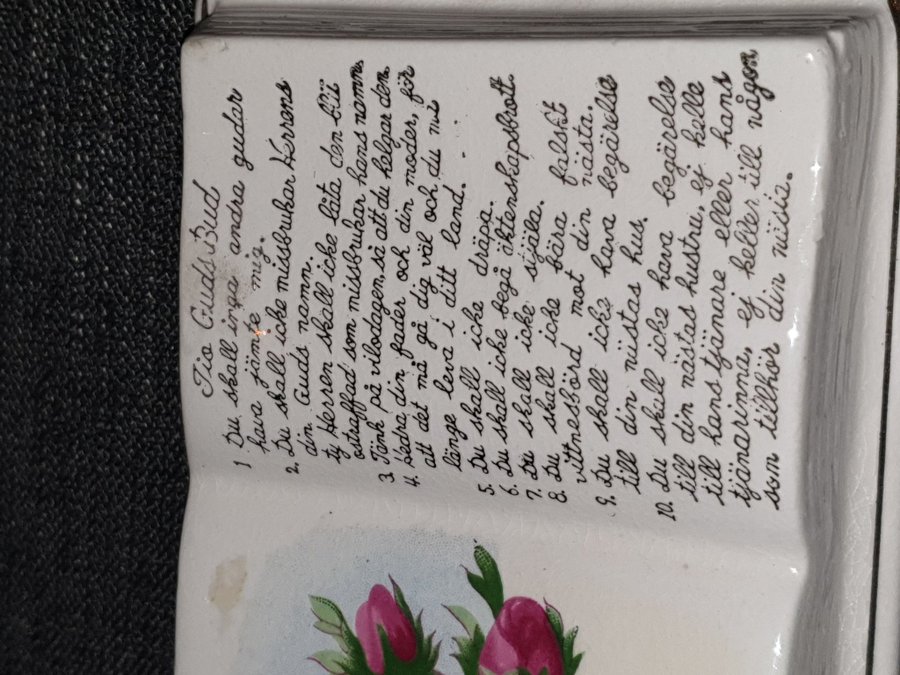 Tio Guds Bud
1 Du skall inga andra gudar
hava jämte mig.
2. Du skall icke missbrukar Herrens
din Guds namn.
ty Herren skall icke låta den bli
ostraffad som missbrukar hans namn
3. Tänk på vilodagen, så att du helgar den.
4. Hedra din fader och din moder, för
att det må gå dig väl och du må
länge leva i ditt land.
5. Du skall icke dräpa.
6. Du skall icke begå äktenskapsbrott.
7. Du skall icke stjäla.
8. Du skall icke bära falskt
vittnesbörd mot din nästa.
9. Du skall icke hava begärelse
till din nästas hus.
10. Du skall icke hava begärelse
till din nästas hustru, ej helle
till hans tjänare eller hans
tjänarinna, ej heller till någon
som tillhör din nästa.